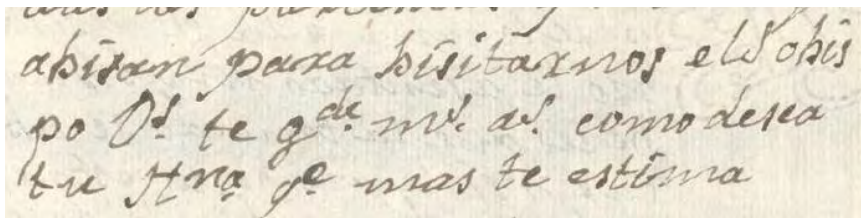 abisan para bisitarnos el S.r obis
po D.s te g.de m.s a.s como desea
tu Hna q.e mas te estima